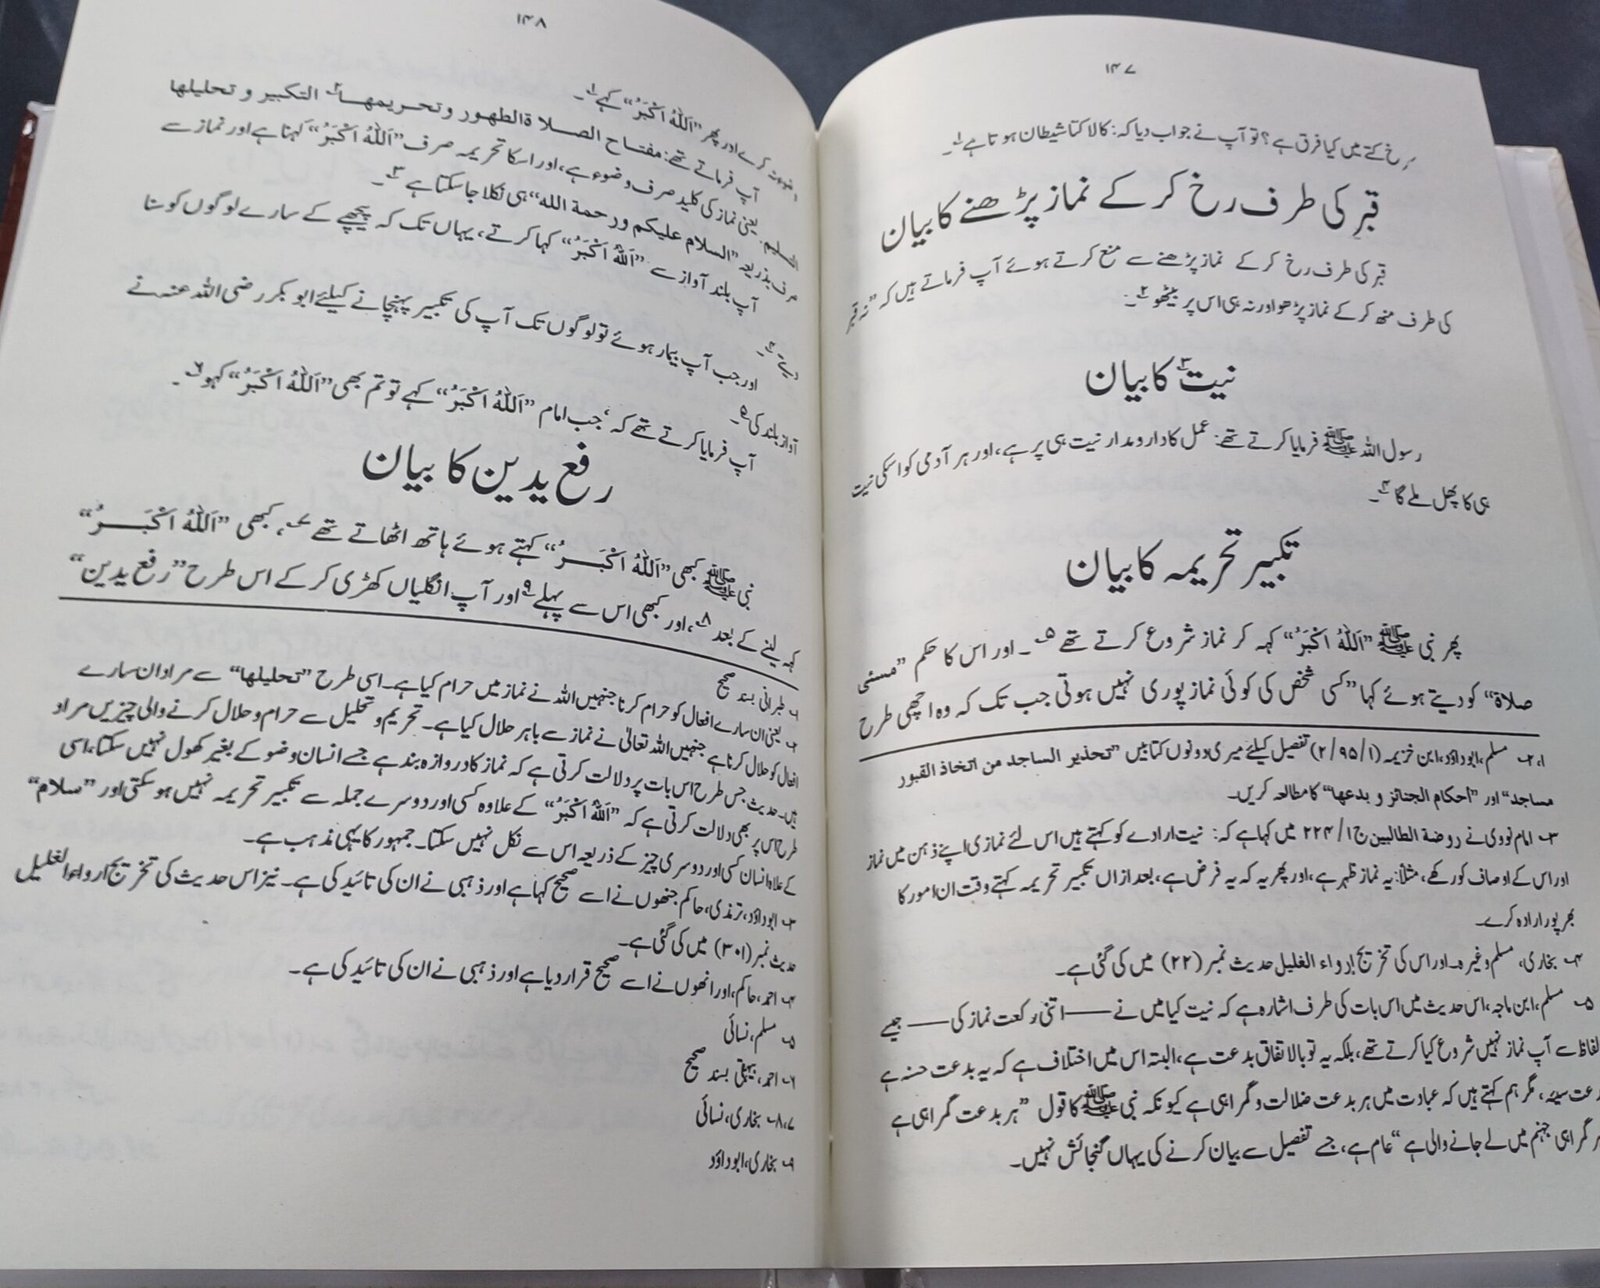 ۱۴۷
سرخ کتے میں کیا فرق ہے؟ تو آپ نے جواب دیا کہ: کالا کتا شیطان ہوتا ہے۱۔
قبر کی طرف رخ کر کے نماز پڑھنے کا بیان
قبر کی طرف رخ کر کے نماز پڑھنے سے منع کرتے ہوئے آپ فرماتے ہیں کہ ”نہ قبر
کی طرف منھ کر کے نماز پڑھو اور نہ ہی اس پر بیٹھو“۲۔
نیت۳ کا بیان
رسول اللہ ﷺ فرمایا کرتے تھے: عمل کا دارومدار نیت ہی پر ہے، اور ہر آدمی کو اسکی نیت
ہی کا پھل ملے گا۴۔
تکبیر تحریمہ کا بیان
پھر نبی ﷺ ”اَللّٰہُ اَکْبَرُ“ کہہ کر نماز شروع کرتے تھے۵۔ اور اس کا حکم ”مسئی
صلاۃ“ کو دیتے ہوئے کہا ”کسی شخص کی کوئی نماز پوری نہیں ہوتی جب تک کہ وہ اچھی طرح
۱،۲۔ مسلم، ابوداؤد، ابن خزیمہ (۲/۹۵/۱) تفصیل کیلئے میری دونوں کتابیں ”تحذیر الساجد من اتخاذ القبور
مساجد“ اور ”احکام الجنائز و بدعھا“ کا مطالعہ کریں۔
۳۔ امام نووی نے روضۃ الطالبین ج۱/۲۲۴ میں کہا ہے کہ: نیت ارادے کو کہتے ہیں اس لئے نمازی اپنے ذہن میں نماز
اور اس کے اوصاف کو رکھے، مثلاً: یہ نماز ظہر ہے، اور پھر یہ کہ یہ فرض ہے، بعد ازاں تکبیر تحریمہ کہتے وقت ان امور کا
بھرپور ارادہ کرے۔
۴۔ بخاری، مسلم وغیرہ۔ اور اس کی تخریج إرواء الغلیل حدیث نمبر (۲۲) میں کی گئی ہے۔
۵۔ مسلم، ابن ماجہ، اس حدیث میں اس بات کی طرف اشارہ ہے کہ نیت کیا میں نے —— اتنی رکعت نماز کی —— جیسے
الفاظ سے آپ نماز نہیں شروع کیا کرتے تھے، بلکہ یہ تو بالاتفاق بدعت ہے، البتہ اس میں اختلاف ہے کہ یہ بدعت حسنہ ہے
بدعت سیئہ، مگر ہم کہتے ہیں کہ عبادت میں ہر بدعت ضلالت و گمراہی ہے کیونکہ نبی ﷺ کا قول ”ہر بدعت گمراہی ہے
ہر گمراہی جہنم میں لے جانے والی ہے“ عام ہے، جسے تفصیل سے بیان کرنے کی یہاں گنجائش نہیں۔
۱۴۸
وضو نہ کرے اور پھر ”اَللّٰہُ اَکْبَرُ“ کہے۱۔
آپ فرماتے تھے: مفتاح الصلاۃ الطھور و تحریمھا۲ التکبیر و تحلیلھا
التسلیم۔ یعنی نماز کی کلید صرف وضوء ہے، اور اسکا تحریمہ صرف ”اَللّٰہُ اَکْبَرُ“ کہنا ہے اور نماز سے
صرف بذریعہ ”السلام علیکم ورحمۃ اللہ“ ہی نکلا جا سکتا ہے۳۔
آپ بلند آواز سے ”اَللّٰہُ اَکْبَرُ“ کہا کرتے، یہاں تک کہ پیچھے کے سارے لوگوں کو سنا
دیتے۴۔
اور جب آپ بیمار ہوئے تو لوگوں تک آپ کی تکبیر پہنچانے کیلئے ابوبکر رضی اللہ عنہ نے
آواز بلند کی۵۔
آپ فرمایا کرتے تھے کہ ’جب امام ”اَللّٰہُ اَکْبَرُ“ کہے تو تم بھی ”اَللّٰہُ اَکْبَرُ“ کہو۶۔
رفع یدین کا بیان
نبی ﷺ کبھی ”اَللّٰہُ اَکْبَرُ“ کہتے ہوئے ہاتھ اٹھاتے تھے۷، کبھی ”اَللّٰہُ اَکْبَرُ“
کہہ لینے کے بعد۸، اور کبھی اس سے پہلے۹ اور آپ انگلیاں کھڑی کر کے اس طرح ”رفع یدین“
۱۔ طبرانی بسند صحیح
۲۔ یعنی ان سارے افعال کو حرام کرنا جنہیں اللہ نے نماز میں حرام کیا ہے۔ اسی طرح ”تحلیلھا“ سے مراد ان سارے
افعال کو حلال کرنا ہے جنہیں اللہ تعالیٰ نے نماز سے باہر حلال کیا ہے۔ تحریم و تحلیل سے حرام و حلال کرنے والی چیزیں مراد
ہیں۔ حدیث جس طرح اس بات پر دلالت کرتی ہے کہ نماز کا دروازہ بند ہے جسے انسان وضو کے بغیر کھول نہیں سکتا، اسی
طرح اس پر بھی دلالت کرتی ہے کہ ”اَللّٰہُ اَکْبَرُ“ کے علاوہ کسی اور دوسرے جملہ سے تکبیر تحریمہ نہیں ہو سکتی اور ”سلام“
کے علاوہ انسان کسی اور دوسری چیز کے ذریعہ اس سے نکل نہیں سکتا۔ جمہور کا یہی مذہب ہے۔
۳۔ ابوداؤد، ترمذی، حاکم جنھوں نے اسے صحیح کہا ہے اور ذہبی نے ان کی تائید کی ہے۔ نیز اس حدیث کی تخریج ارواء الغلیل
حدیث نمبر (۳۰۱) میں کی گئی ہے۔
۴۔ احمد، حاکم، اور انھوں نے اسے صحیح قرار دیا ہے اور ذہبی نے ان کی تائید کی ہے۔
۵۔ مسلم، نسائی
۶۔ احمد، بیہقی بسند صحیح
۷،۸۔ بخاری، نسائی
۹۔ بخاری، ابوداؤد